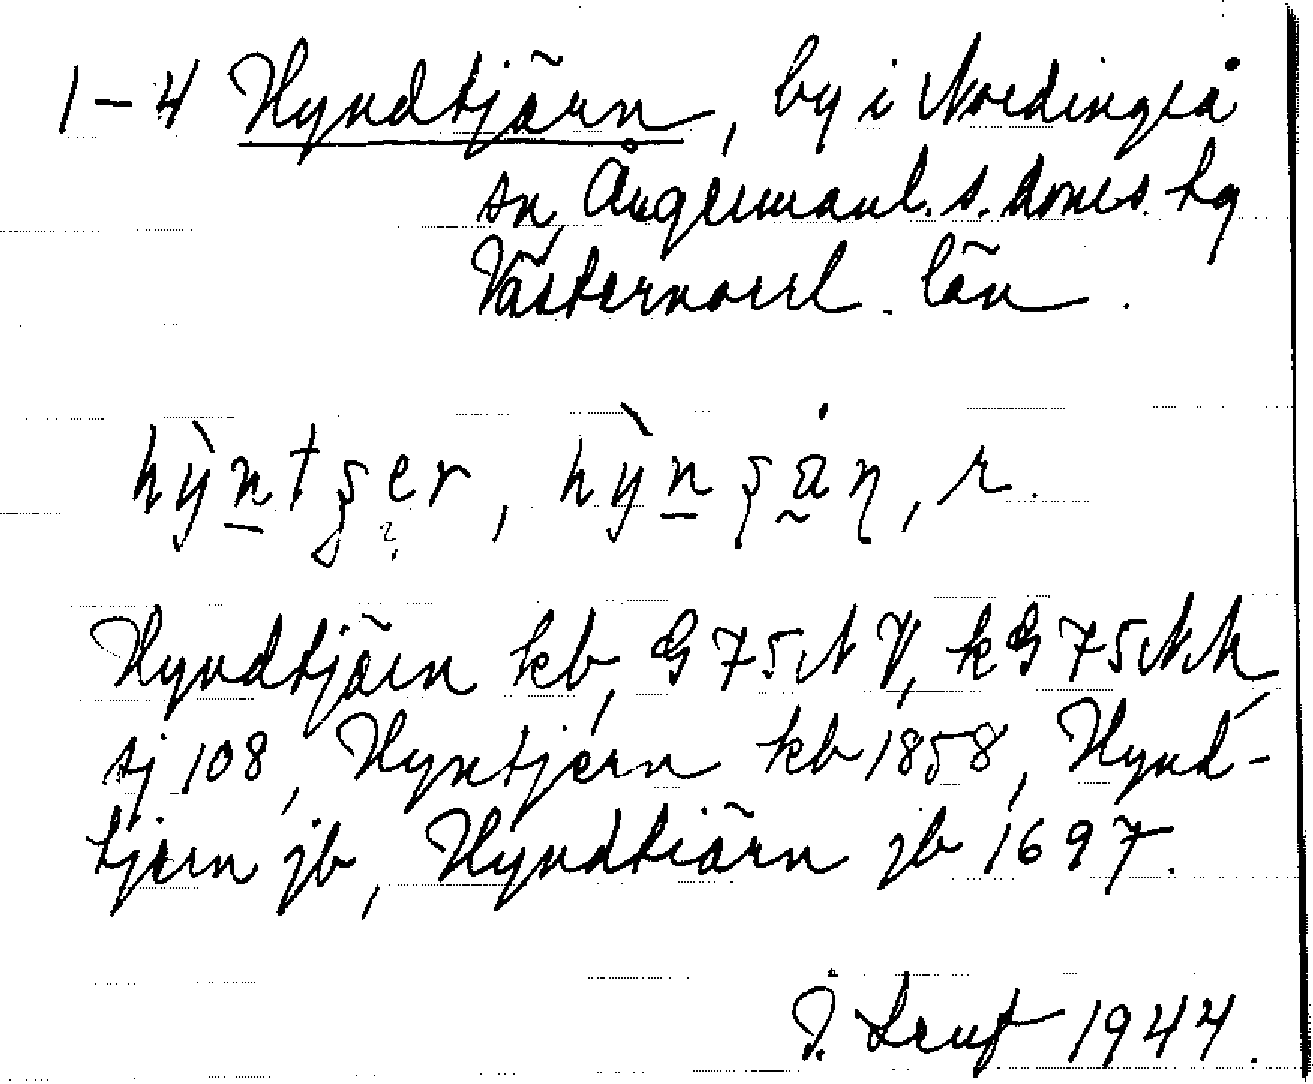 1-4 Hyndtjärn, by i Nordingrå
sn, Ångermanl. s. doms. hg
Västernorrl. län.
Hyndtjärn kb, G 75 NV, k G 75
sj 108, Hyntjern kb 1858, Hynd-
tjern jb, Hyndtiärn jb 1697.
1944.